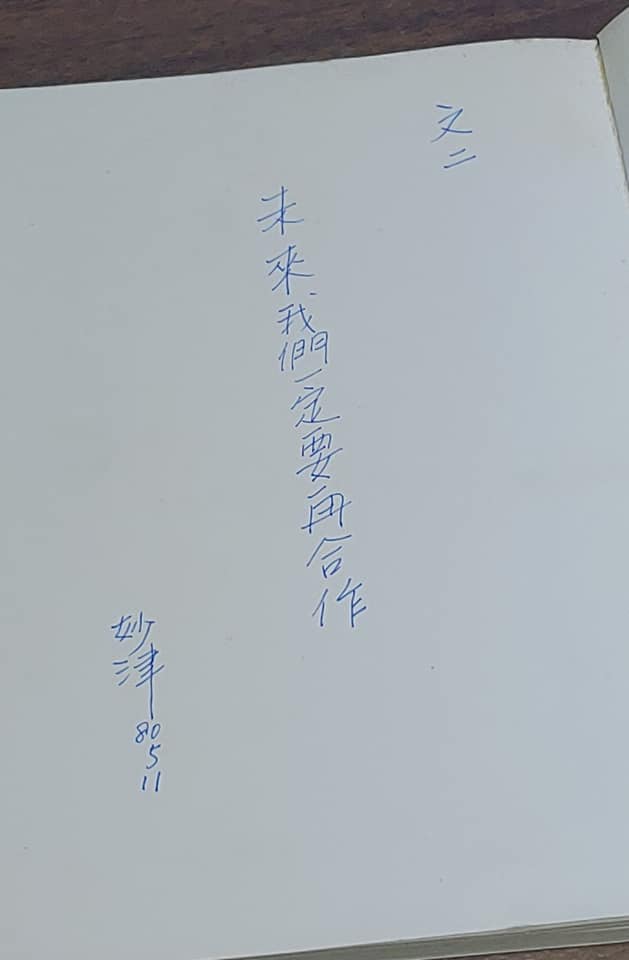 文二
未來、我們一定要再合作
妙津
80
5
11